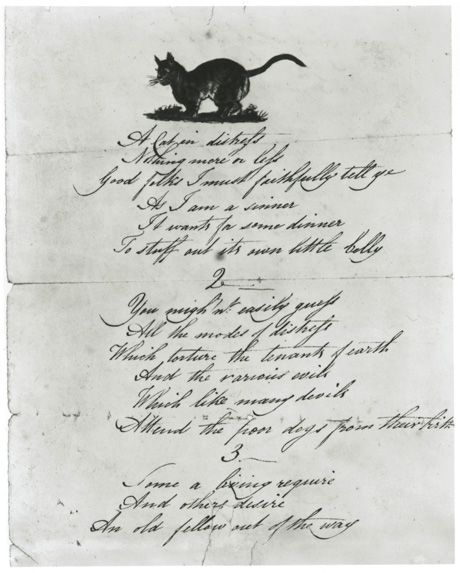 A Cat in distress
Nothing more or less
Good folks I must faithfully tell ye
As I am a sinner
It wants for some dinner
To stuff out its own little belly
2
You might n't easily guess
All the modes of distress
Which torture the tenants of earth
And the various evils
Which like many devils
Attend the poor dogs from their birth
3
Some a living require
And others desire
An old fellow out of the way